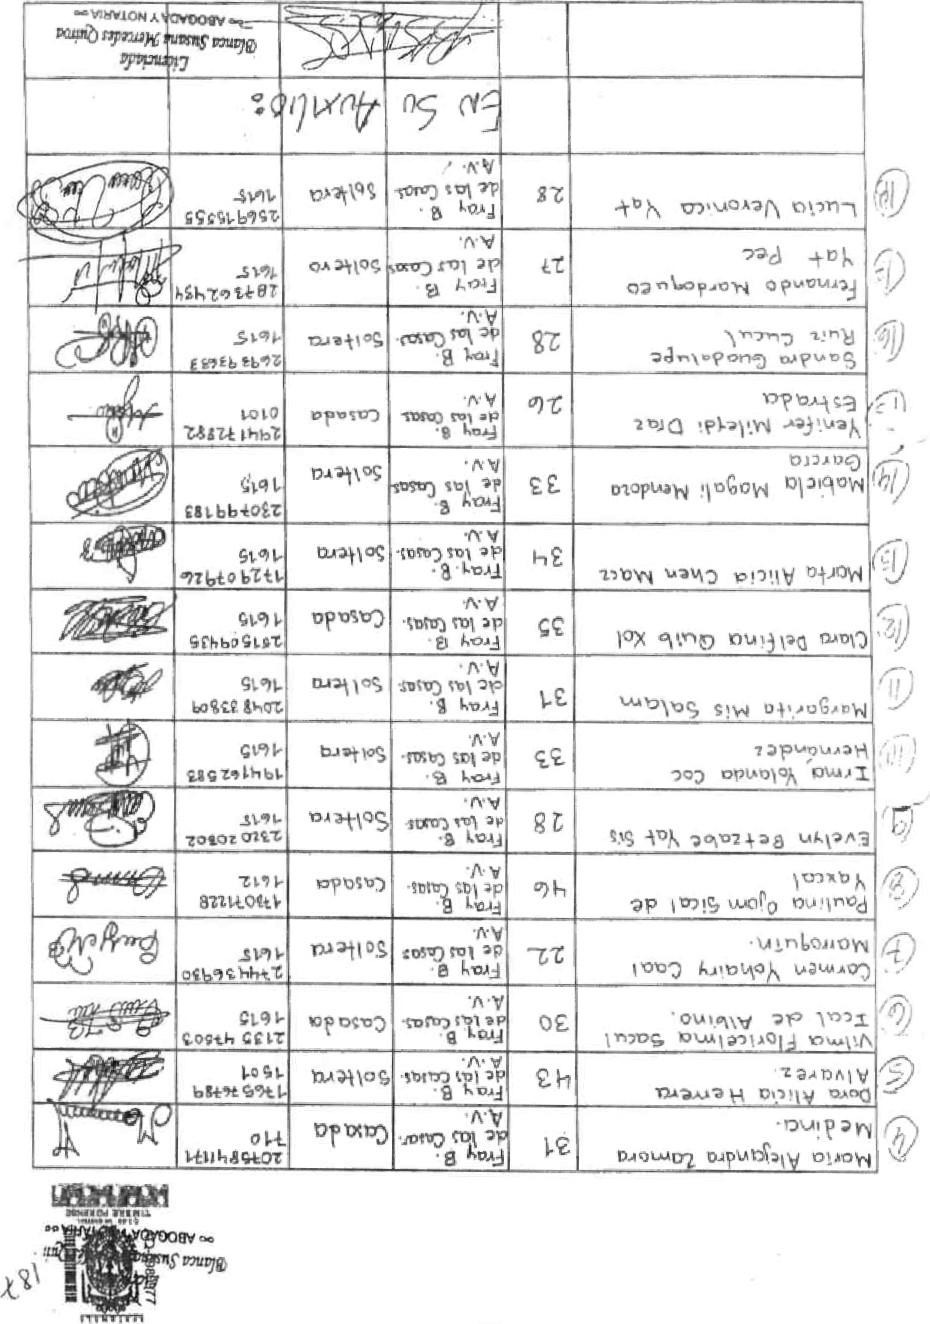 187
Blanca Susana
ABOGADA Y NOTARIA
TIMBRE FORENSE
4 Maria Alejandra Zamora Medina. 31 Fray B. de las Casas. A.V. Casada 2075841171 710
5 Dora Alicia Herrera Alvarez. 43 Fray B. de las Casas. A.V. Soltera 176576789 1501
6 Vilma Floricelma Sacul Ical de Albino. 30 Fray B. de las Casas. A.V. Casada 213547503 1615
7 Carmen Yohairy Caal Marroquín. 22 Fray B. de las Casas A.V. Soltera 274436930 1615
8 Paulina Ojom Sical de Yaxcal 46 Fray B. de las Casas. A.V. Casada 173071228 1612
9 Evelyn Betzabe Yat Sis 28 Fray B. de las Casas A.V. Soltera 232020802 1615
10 Irma Yolanda Coc Hernández 33 Fray B. de las Casas. A.V. Soltera 194162583 1615
11 Margarita Mis Salam 31 Fray B. de las Casas A.V. Soltera 204833809 1615
12. Clara Delfina Quib Xol 35 Fray B. de las Casas. A.V. Casada 251509435 1615
13 Marta Alicia Chen Macz 34 Fray. B. de las Casas. A.V. Soltera 172907926 1615
14 Mabiela Magali Mendoza García 33 Fray B. de las Casas. A.V. Soltera 230799183 1615
Yenifer Mileydi Díaz Estrada 26 Fray B. de las Casas A.V. Casada 244172882 0101
16 Sandra Guadalupe Ruiz Cucul 28 Fray B. de las Casas. A.V. Soltera 269393683 1615
Fernando Mardoqueo Yat Pec 27 Fray B. de las Casas A.V. Soltero 287362484 1615
18 Lucia Veronica Yat 28 Fray B. de las Casas A.V. Soltera 256915555 1615
EN SU AUXILIO:
Licenciada
Blanca Susana Mercedes Quiroa
ABOGADA Y NOTARIA